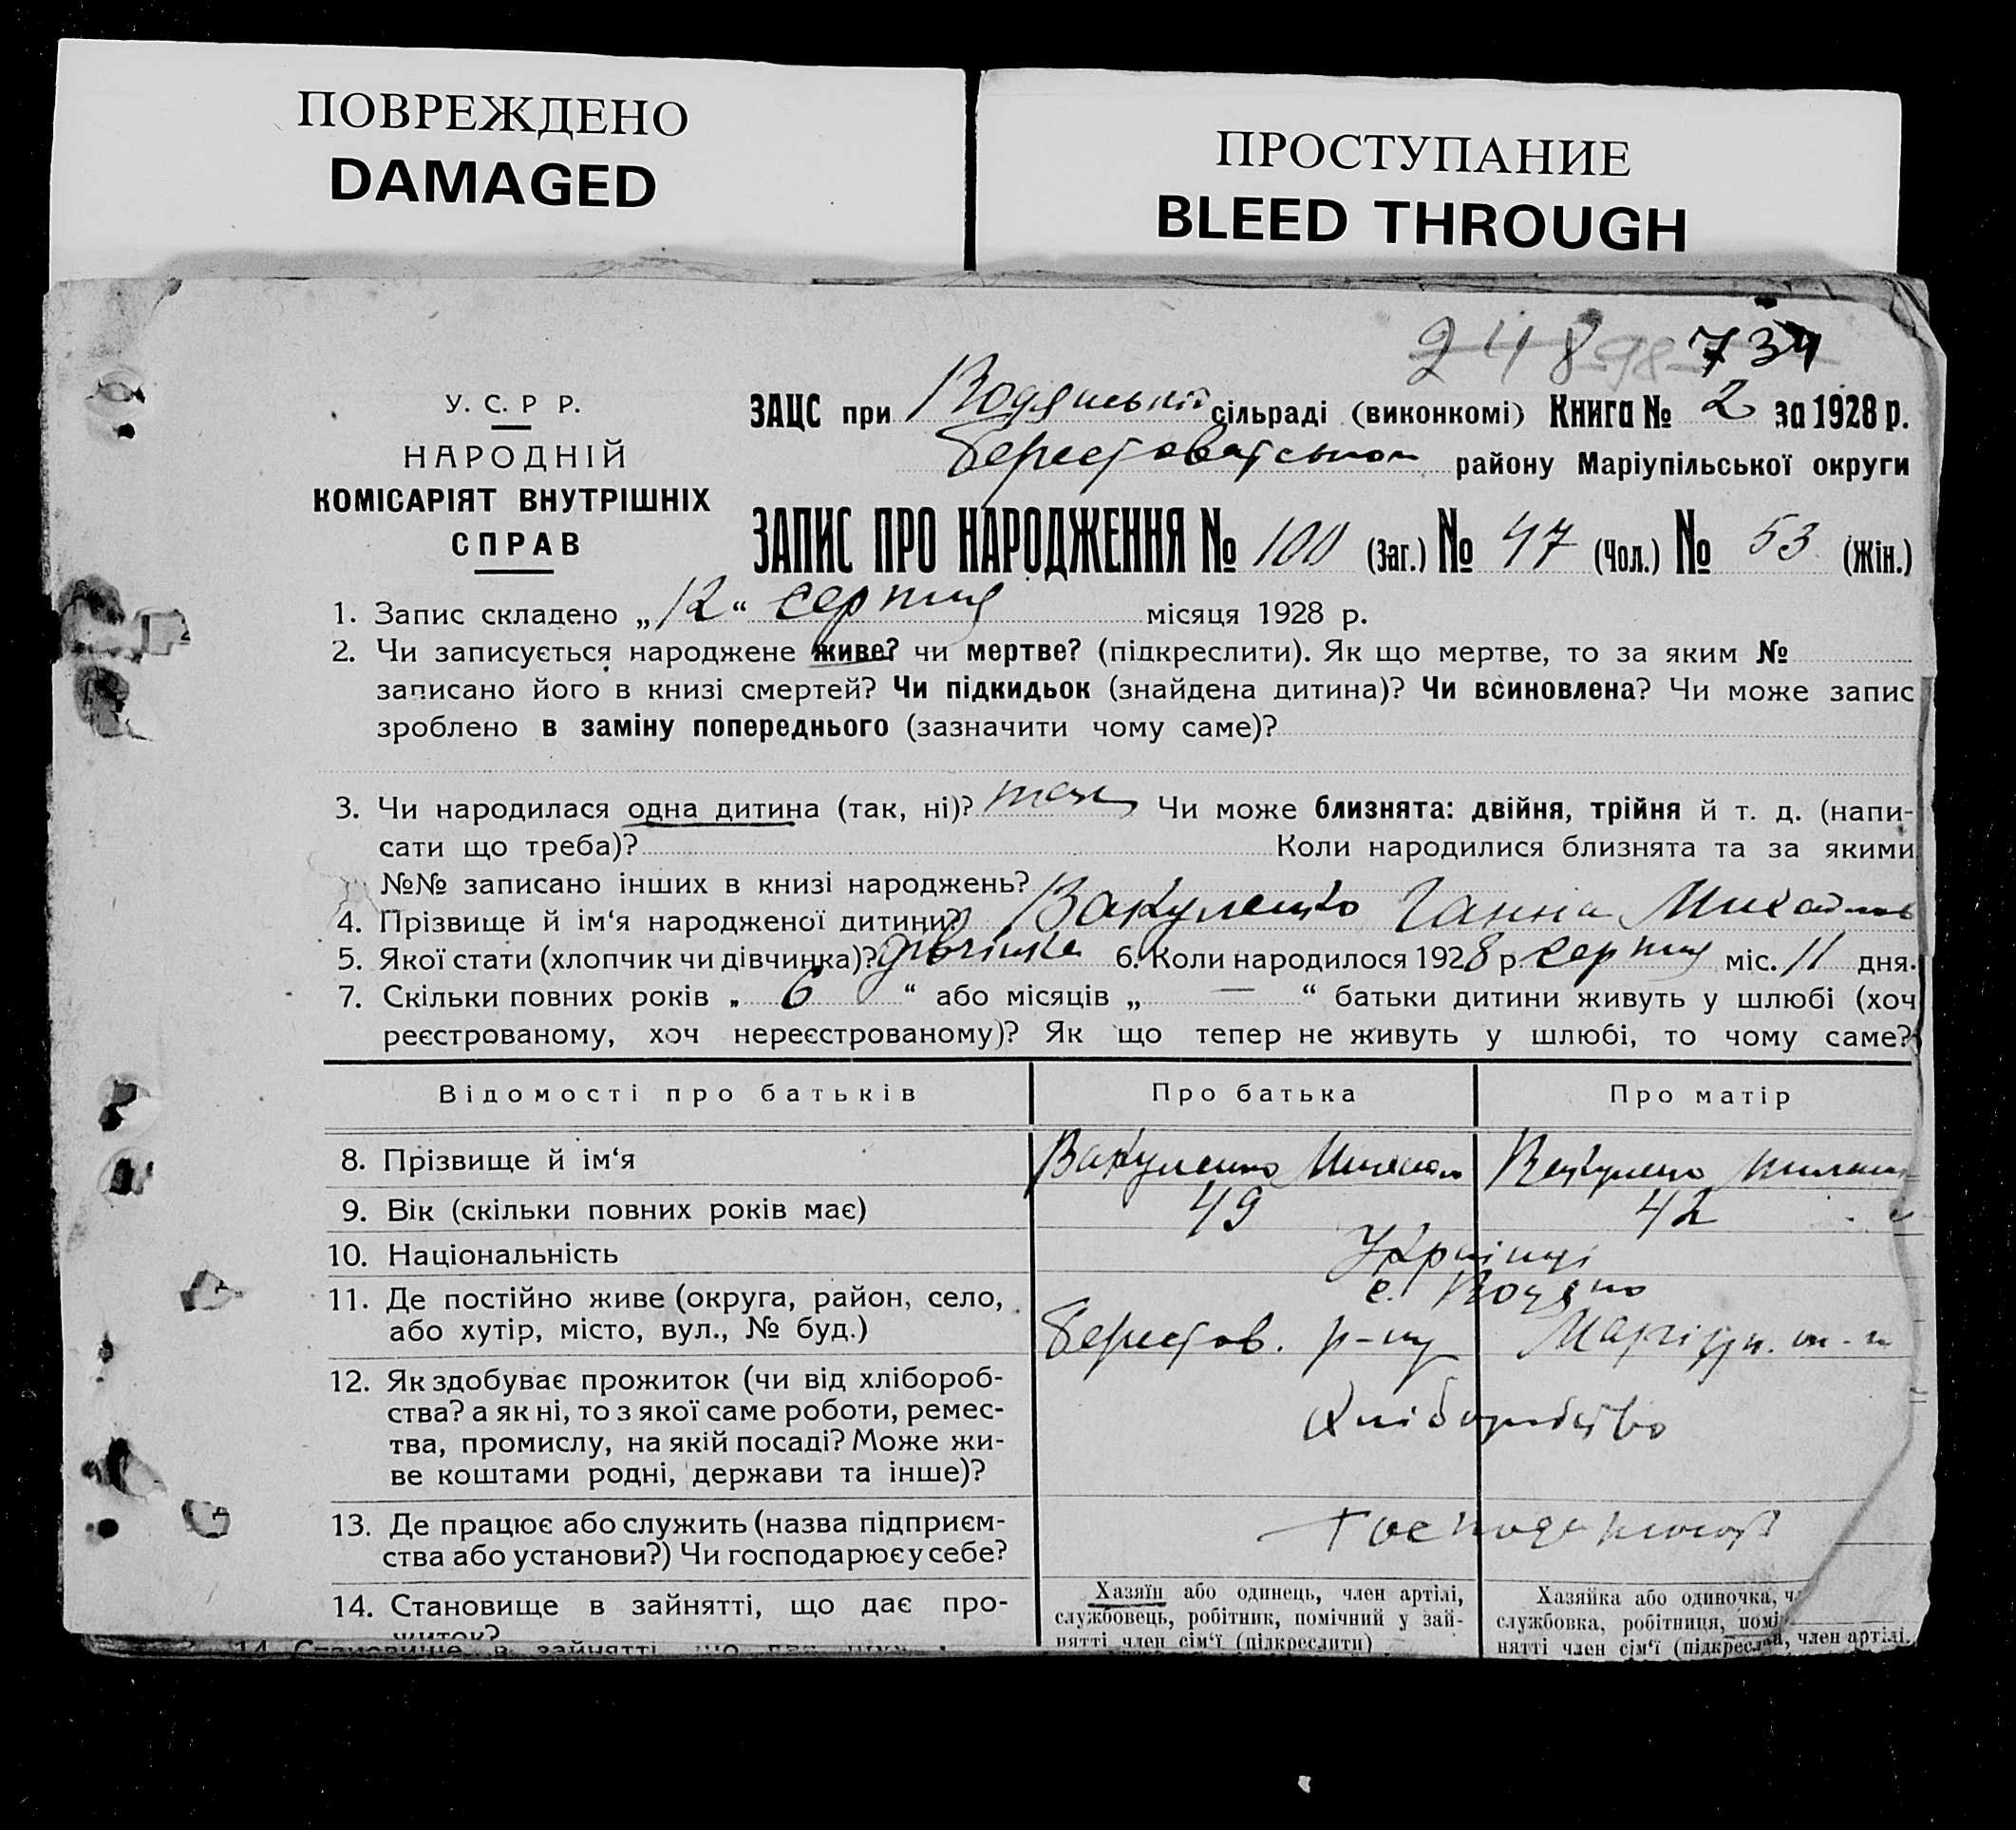 ПОВРЕЖДЕНО
DAMAGED
ПРОСТУПАНИЕ
BLEED THROUGH
248 98 734
У. С. Р Р.
НАРОДНІЙ
КОМІСАРІЯТ ВНУТРІШНІХ
СПРАВ
ЗАЦС при Водянській сільраді (виконкомі) Книга № 2 за 1928 р.
Берестоватського району Маріупільської округи
ЗАПИС ПРО НАРОДЖЕННЯ № 100 (Заг.) № 47 (Чол.) № 53 (Жін.)
1. Запис складено „12“ серпня місяця 1928 р.
2. Чи записується народжене живе? чи мертве? (підкреслити). Як що мертве, то за яким №
записано його в книзі смертей? Чи підкидьок (знайдена дитина)? Чи всиновлена? Чи може запис
зроблено в заміну попереднього (зазначити чому саме)?
3. Чи народилася одна дитина (так, ні)? так Чи може близнята: двійня, трійня й т. д. (напи-
сати що треба)? Коли народилися близнята та за якими
№№ записано інших в книзі народжень?
4. Прізвище й ім‘я народженої дитини? Вакуленко Ганна Михайлов
5. Якої стати (хлопчик чи дівчинка)? дівчінка 6. Коли народилося 1928 р. серпня міс. 11 дня.
7. Скільки повних років „ 6 “ або місяців „ — “ батьки дитини живуть у шлюбі (хоч
реєстрованому, хоч нереєстрованому)? Як що тепер не живуть у шлюбі, то чому саме?
Відомості про батьків Про батька Про матір
8. Прізвище й ім‘я Вакуленко Михайло Вакуленко
9. Вік (скільки повних років має) 49 42
10. Національність Українці
11. Де постійно живе (округа, район, село, с. Водяно
або хутір, місто, вул., № буд.) Берестов. р-ну Маріуп. ок-и
12. Як здобуває прожиток (чи від хлібороб-
ства? а як ні, то з якої саме роботи, ремес- Хліборобство
тва, промислу, на якій посаді? Може жи-
ве коштами родні, держави та інше)?
13. Де працює або служить (назва підприєм-
ства або установи?) Чи господарює у себе?
14. Становище в зайнятті, що дає про-
житок?
Хазяїн або одинець, член артілі,
службовець, робітник, помічний у зай-
нятті член сім‘ї (підкреслити)
Хазяйка або одиночка, ч
службовка, робітниця, помі
нятті член сім‘ї (підкресл
член артілі.
14. Становище в зайнятті, що дає